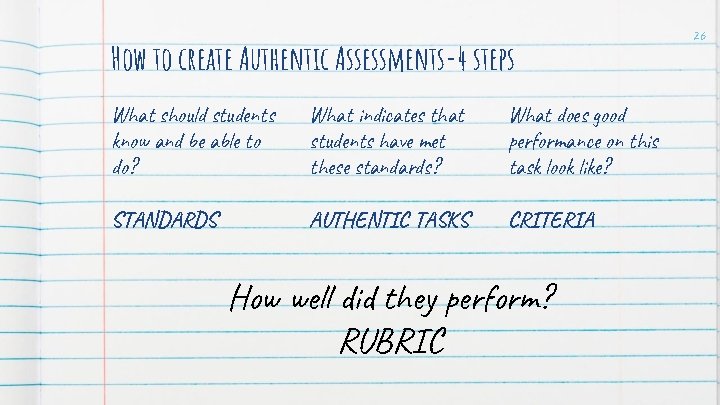 26
How to create Authentic Assessments-4 steps
What should students
know and be able to
do?
STANDARDS
What indicates that
students have met
these standards?
AUTHENTIC TASKS
What does good
performance on this
task look like?
CRITERIA
How well did they perform?
RUBRIC